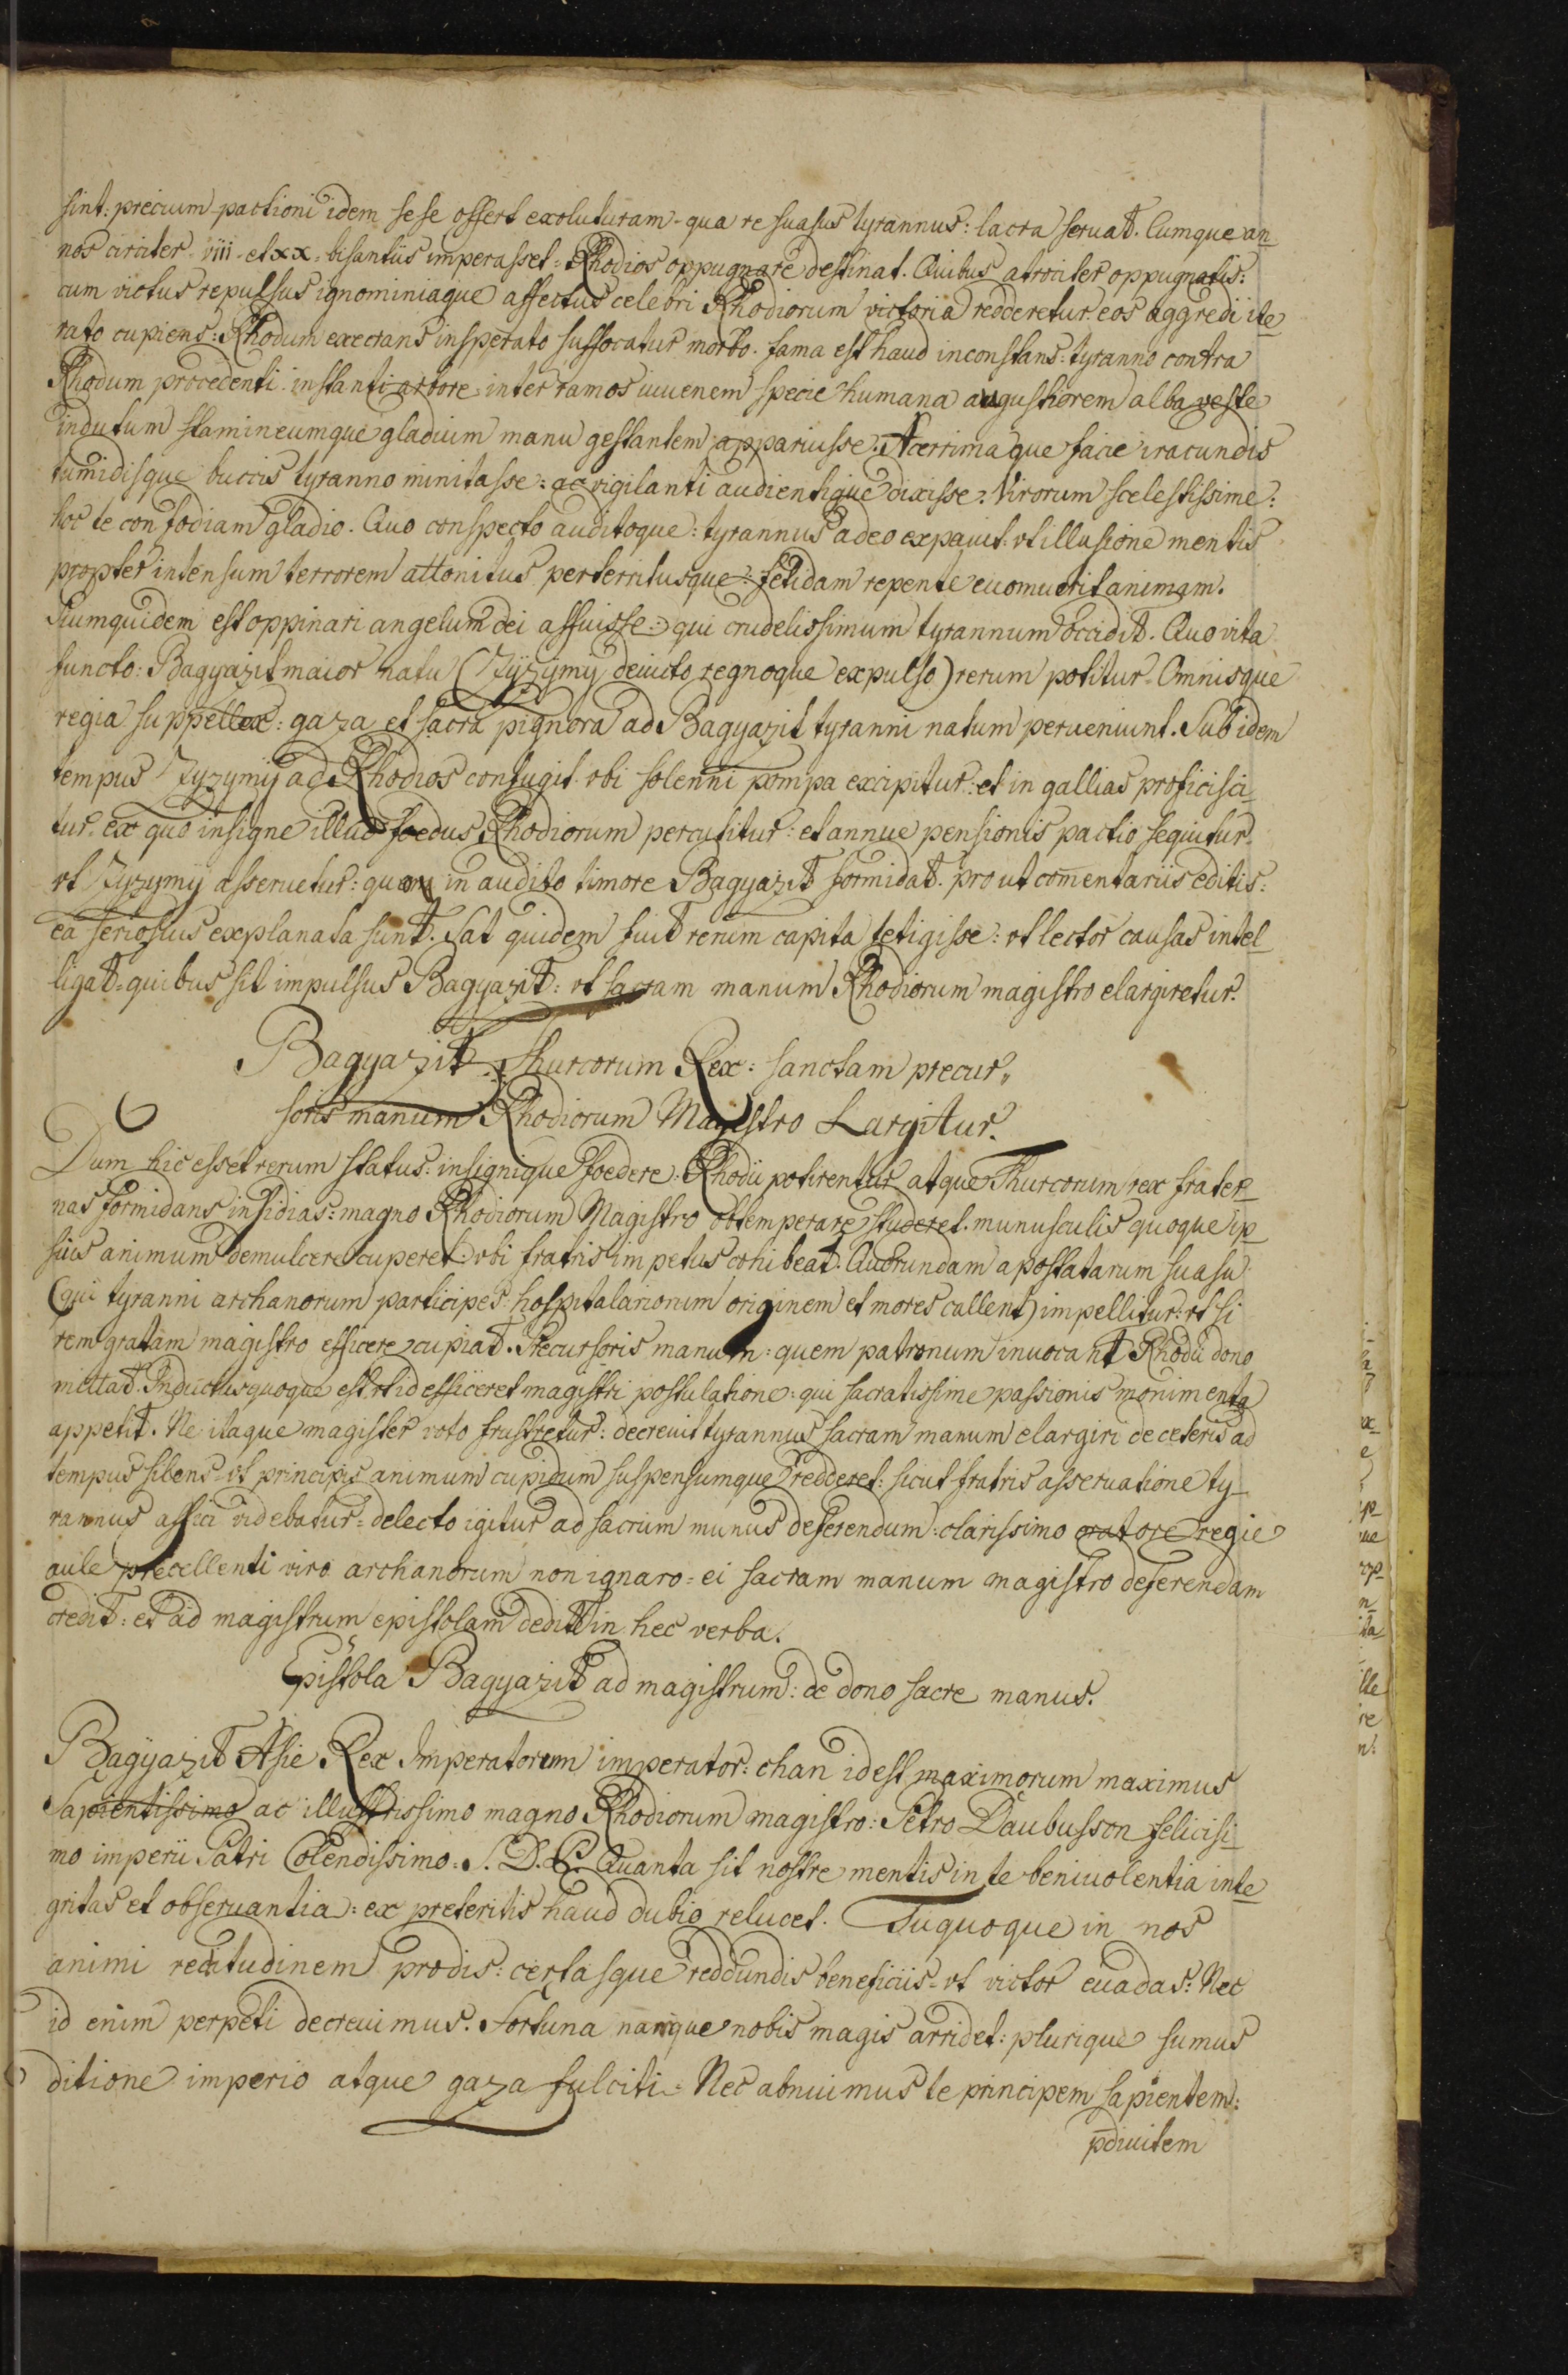 sint: precium pactioni idem sese offert exoluturam - qua re suasus tyrannus: lacra seruat. Cumque an_
nos circiter - viii - et xx = bisantiis imperasset = Rhodios oppugnare destinat. Quibus atrociter oppugnatis:
cum victus repulsus ignominiaque affectus celebri Rhodiorum victoria redderetur. eos aggredi ite_
rato cupiens: Rhodum execrans insperato suffocatur morbo. fama est haud inconstans: tyranno contra
Rhodum procedenti instanti arbore inter ramos iuuenem specie humana augustiorem alba veste
indutum stamineumque gladium manu gestantem appariusse. Acerrimaque facie iracundis
tumidisque buccis tyranno minitasse: ac vigilanti audientique dixisse: Virorum scelestissime:
hoc te confodiam gladio. Quo conspecto auditoque: tyrannus adeo expauit. vt illusione mentis
propter intensum terrorem attonitus perterritusque: fetidam repente euomuerit animam.
Piumquidem est oppinari angelum dei affuisse: qui crudelissimum tyrannum occidit. Quo vita
functo: Bagyazit maior natu (Zyzymy deuicto regnoque expulso) rerum potitur. Omnisque
regia suppellex: gaza et sacra pignora ad Bagyazit tyranni natum perueniunt. Sub idem
tempus Zyzymij ad Rhodios confugit. vbi solenni pompa excipitur: et in gallias proficisci_
tur. ex quo insigne illud foedus Rhodiorum percutitur: et annue pensionis pactio sequitur.
vt Zyzymy asseruetur: quem inaudito timore Bagyazit formidat. prout comentariis editis:
ea seriosius explanata sunt. Sat quidem fuit rerum capita tetigisse: vt lector causas intel_
ligat = quibus sit impulsus Bagyazit: vt sacram manum Rhodiorum magistro elargiretur.
Bagyazit Thurcorum Rex: sanctam precur„
soris manum Rhodiorum Magistro Largitur.
Dum hic esset rerum status: insignique foedere: Rhodii potirentur atque Thurcorum rex frater_
nas formidans insidias: magno Rhodiorum Magistro obtemperare studeret. munusculis quoque ip_
sius animum demulcere cuperet: vbi fratris impetus cohibeat. Quorundam apostatarum suasu
(qui tyranni archanorum participes: hospitalariorum originem et mores callent) impellitur: vt si
rem gratam magistro efficere cupiat. Precursoris manum: quem patronum inuocant Rhodii dono
mittat. Inductusquoque est vt id efficeret magistri postulatione: qui sacratissime passionis monimenta
appetit. Ne itaque magister voto frustretur: decreuit tyrannus sacram manum elargiri de ceteris ad
tempus silens - vt principis animum cupidum suspensumque redderet: sicut fratris asseruatione ty_
rannus affici videbatur = delecto igitur ad sacrum munus deferendum: clarissimo oratore regie
aule precellenti viro archanorum non ignaro = ei sacram manum magistro deferendam
credit: et ad magistrum epistolam dedit in hec verba.
Epistola Bagyazit ad magistrum: de dono sacre manus.
Bagyazit Asie Rex Imperatorum imperator: chan idest maximorum maximus
Sapientissimo ac illustrissimo magno Rhodiorum magistro: Petro Daubusson felicisi_
mo imperii Patri Colendissimo: S. D. P. Quanta sit nostre mentis in te beniuolentia inte_
gritas et obseruantia: ex preteritis haud dubio relucet. Tuquoque in nos
animi rectitudinem prodis: certasque reddundis beneficiis - vt victor euadas: Nec
id enim perpeti decreuimus. Fortuna namque nobis magis arridet: plurique sumus
ditione imperio atque gaza fulciti. Nec abnuimus te principem sapientem:
pdiuitem